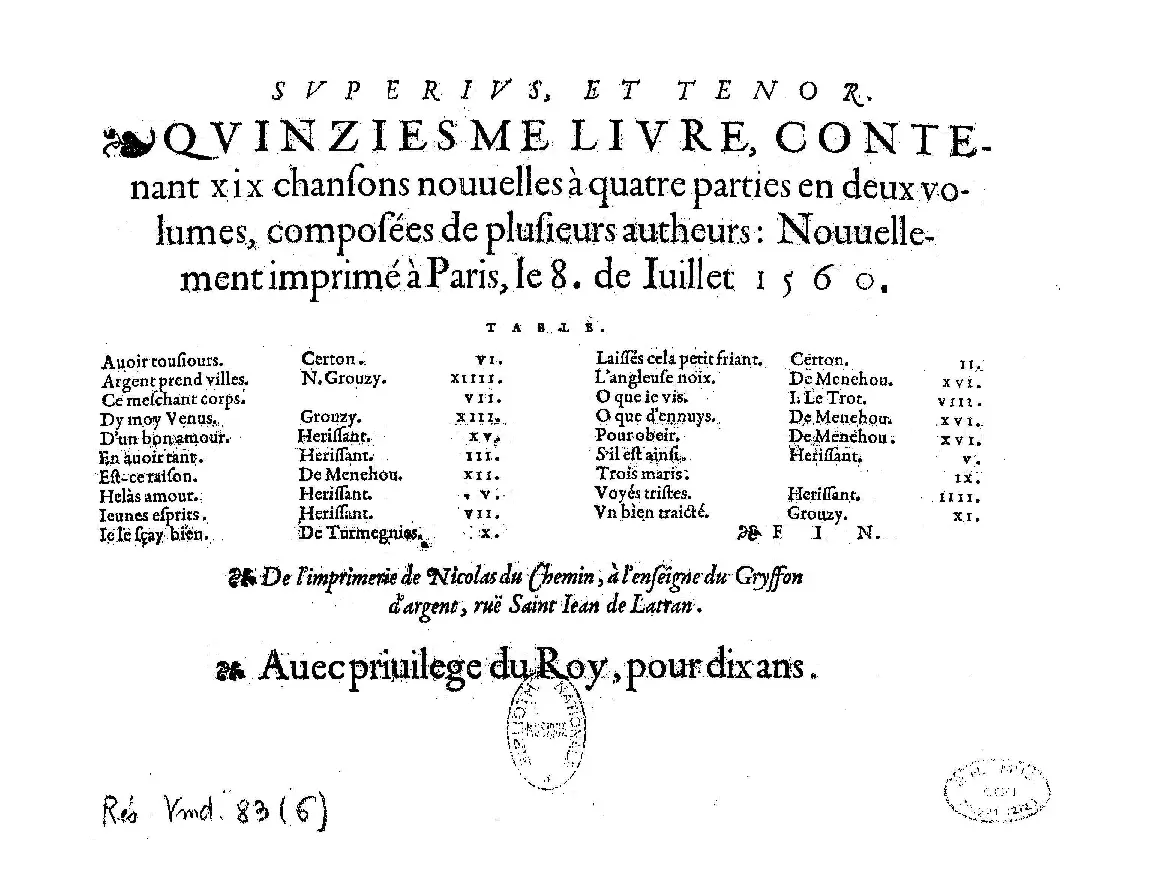 SVPERIVS, ET TENOR.
QVINZIESME LIVRE, CONTE-
nant xix chanſons nouuelles à quatre parties en deux vo-
lumes, compoſées de pluſieurs autheurs: Nouuelle-
ment imprimé à Paris, le 8. de Iuillet 1560.
TABLE.
Auoir touſiours. Certon. VI.
Argent prend villes. N. Grouzy. XIIII.
Ce meſchant corps. VII.
Dy moy Venus. Grouzy. XIII.
D'un bon amour. Heriſſant. XV.
En auoir tant. Heriſſant. III.
Eſt-ce raiſon. De Menehou. XII.
Helàs amour. Heriſſant. V.
Ieunes eſprits. Heriſſant. VII.
Ie le ſçay bien. De Turmegnies. X.
Laiſſés cela petit friant. Certon. II.
L'angleuſe noix. De Menehou. XVI.
O que ie vis. I. Le Trot. VIII.
O que d'ennuys. De Menehou. XVI.
Pour obeir. De Menehou. XVI.
S'il eſt ainſi. Heriſſant. V.
Trois maris. IX.
Voyés triſtes. Heriſſant. IIII.
Vn bien traicté. Grouzy. XI.
FIN.
De l'imprimerie de Nicolas du Chemin, à l'enſeigne du Gryffon
d'argent, ruë Saint Iean de Latran.
Auec priuilege du Roy, pour dix ans.
BIBLIOTH NATIONALE
MUSIQUE
Rés Vmd. 83 (6)